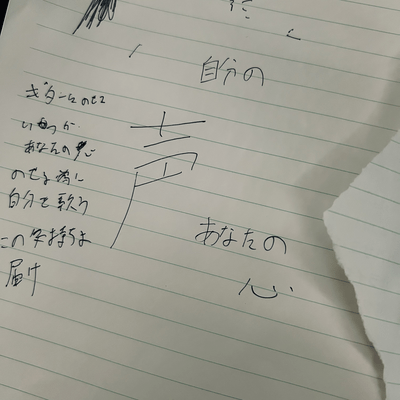 自分の
声
あなたの
心
ギターにのせて
いつか
あなたの心
のせる為に
自分で歌う
この気持ちよ
届け